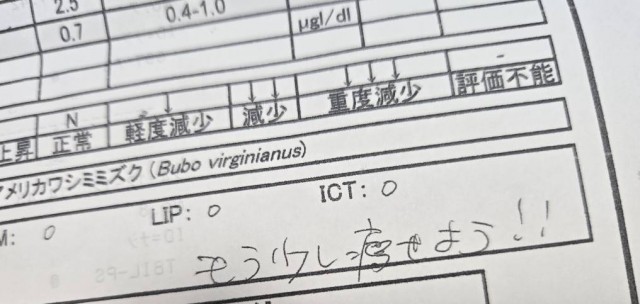 2.5
0.7 0.4-1.0 μgl/dl
N ↓ ↓↓ ↓↓↓ -
上昇 正常 軽度減少 減少 重度減少 評価不能
アメリカワシミミズク (Bubo virginianus)
M: 0 LIP: 0 ICT: 0
もう少し痩せよう!!